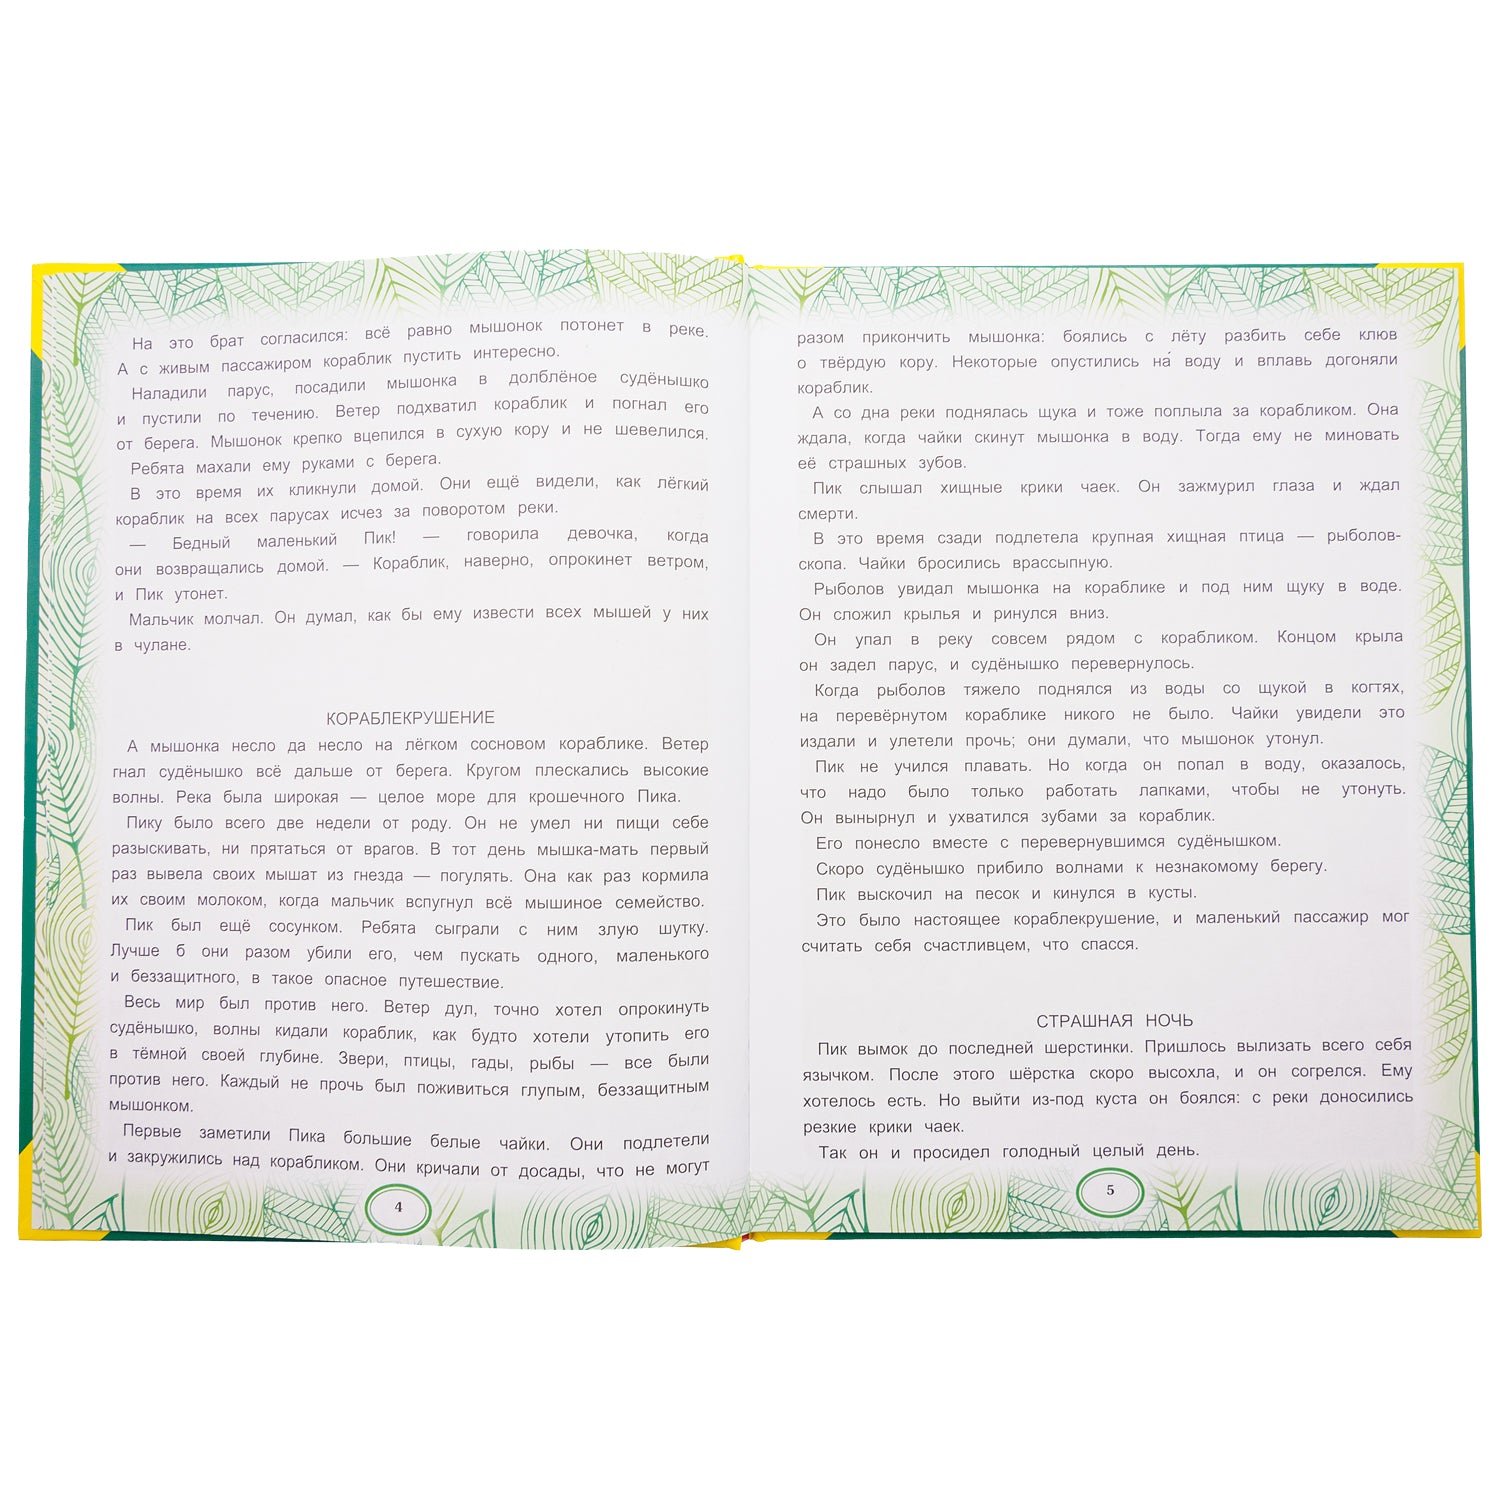 На это брат согласился: всё равно мышонок потонет в реке.
А с живым пассажиром кораблик пустить интересно.
Наладили парус, посадили мышонка в долблёное судёнышко
и пустили по течению. Ветер подхватил кораблик и погнал его
от берега. Мышонок крепко вцепился в сухую кору и не шевелился.
Ребята махали ему руками с берега.
В это время их кликнули домой. Они ещё видели, как лёгкий
кораблик на всех парусах исчез за поворотом реки.
— Бедный маленький Пик! — говорила девочка, когда
они возвращались домой. — Кораблик, наверно, опрокинет ветром,
и Пик утонет.
Мальчик молчал. Он думал, как бы ему извести всех мышей у них
в чулане.
КОРАБЛЕКРУШЕНИЕ
А мышонка несло да несло на лёгком сосновом кораблике. Ветер
гнал судёнышко всё дальше от берега. Кругом плескались высокие
волны. Река была широкая — целое море для крошечного Пика.
Пику было всего две недели от роду. Он не умел ни пищи себе
разыскивать, ни прятаться от врагов. В тот день мышка-мать первый
раз вывела своих мышат из гнезда — погулять. Она как раз кормила
их своим молоком, когда мальчик вспугнул всё мышиное семейство.
Пик был ещё сосунком. Ребята сыграли с ним злую шутку.
Лучше б они разом убили его, чем пускать одного, маленького
и беззащитного, в такое опасное путешествие.
Весь мир был против него. Ветер дул, точно хотел опрокинуть
судёнышко, волны кидали кораблик, как будто хотели утопить его
в тёмной своей глубине. Звери, птицы, гады, рыбы — все были
против него. Каждый не прочь был поживиться глупым, беззащитным
мышонком.
Первые заметили Пика большие белые чайки. Они подлетели
и закружились над корабликом. Они кричали от досады, что не могут
4
разом прикончить мышонка: боялись с лёту разбить себе клюв
о твёрдую кору. Некоторые опустились на́ воду и вплавь догоняли
кораблик.
А со дна реки поднялась щука и тоже поплыла за корабликом. Она
ждала, когда чайки скинут мышонка в воду. Тогда ему не миновать
её страшных зубов.
Пик слышал хищные крики чаек. Он зажмурил глаза и ждал
смерти.
В это время сзади подлетела крупная хищная птица — рыболов-
скопа. Чайки бросились врассыпную.
Рыболов увидал мышонка на кораблике и под ним щуку в воде.
Он сложил крылья и ринулся вниз.
Он упал в реку совсем рядом с корабликом. Концом крыла
он задел парус, и судёнышко перевернулось.
Когда рыболов тяжело поднялся из воды со щукой в когтях,
на перевёрнутом кораблике никого не было. Чайки увидели это
издали и улетели прочь; они думали, что мышонок утонул.
Пик не учился плавать. Но когда он попал в воду, оказалось,
что надо было только работать лапками, чтобы не утонуть.
Он вынырнул и ухватился зубами за кораблик.
Его понесло вместе с перевернувшимся судёнышком.
Скоро судёнышко прибило волнами к незнакомому берегу.
Пик выскочил на песок и кинулся в кусты.
Это было настоящее кораблекрушение, и маленький пассажир мог
считать себя счастливцем, что спасся.
СТРАШНАЯ НОЧЬ
Пик вымок до последней шерстинки. Пришлось вылизать всего себя
язычком. После этого шёрстка скоро высохла, и он согрелся. Ему
хотелось есть. Но выйти из-под куста он боялся: с реки доносились
резкие крики чаек.
Так он и просидел голодный целый день.
5